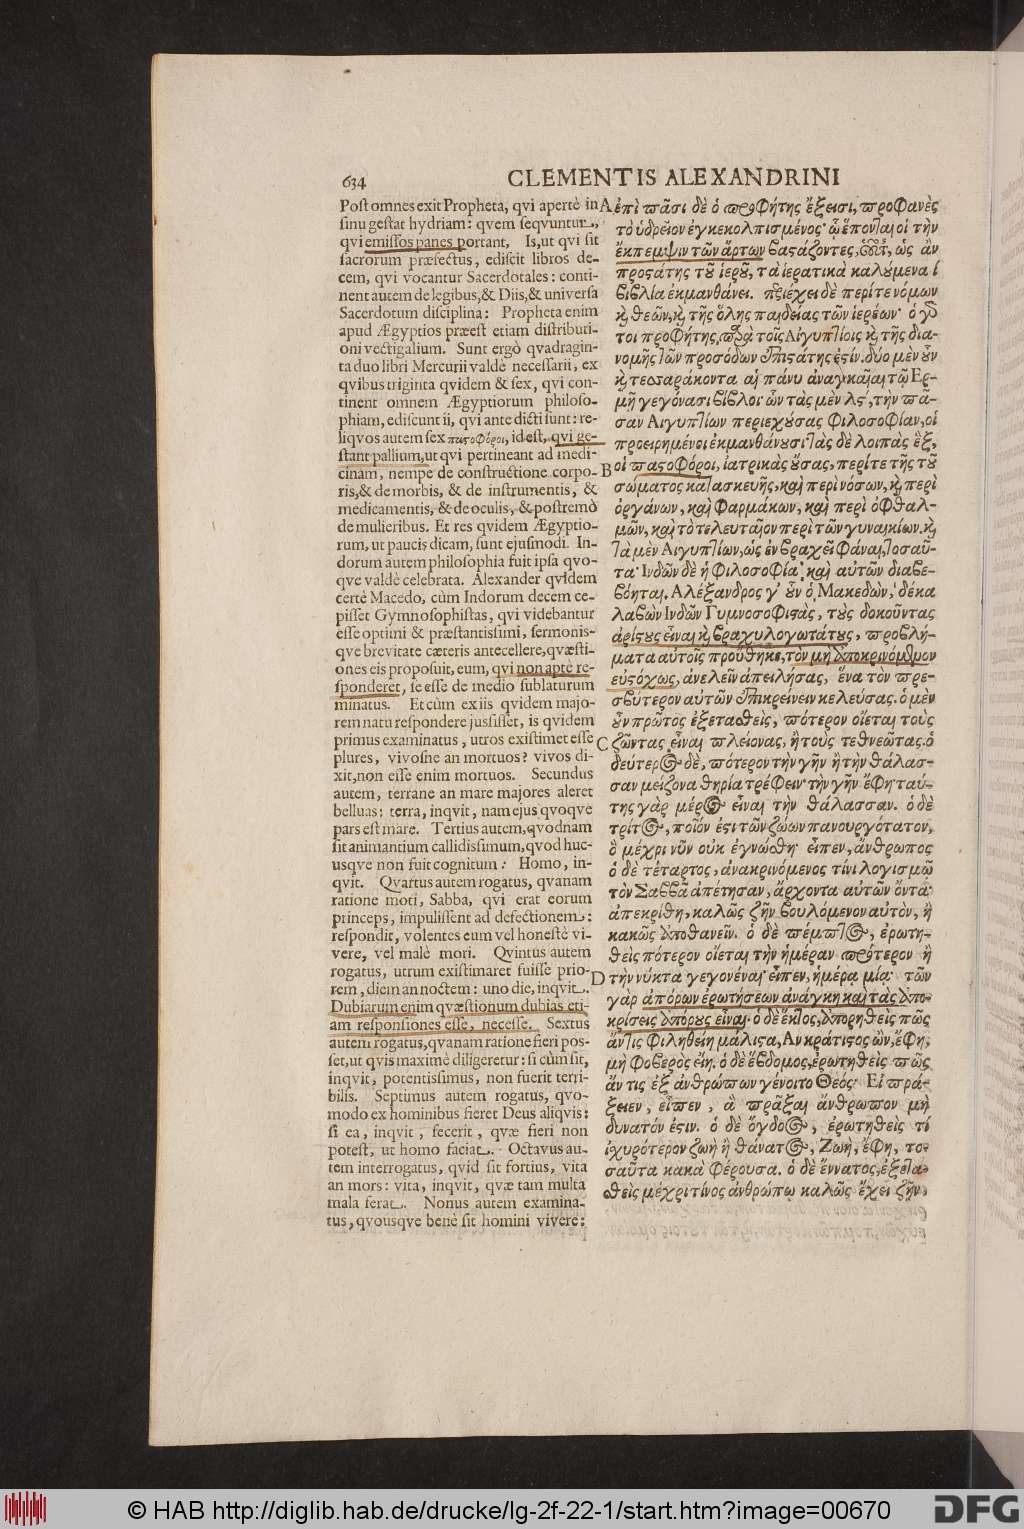 634
CLEMENTIS ALEXANDRINI
Post omnes exit Propheta, qvi apertè in
sinu gestat hydriam: qvem seqvuntur,
qvi emissos panes portant. Is, ut qui sit
sacrorum præfectus, ediscit libros de-
cem, qvi vocantur Sacerdotales: conti-
nent autem de legibus, & Diis, & universa
Sacerdotum disciplina: Propheta enim
apud Ægyptios præest etiam distributi-
oni vectigalium. Sunt ergò qvadragin-
ta duo libri Mercurii valdè necessarii, ex
qvibus triginta qvidem & sex, qvi con-
tinent omnem Ægyptiorum philoso-
phiam, ediscunt ii, qvi ante dicti sunt: re-
liqvos autem sex παστοφόροι, id est, qvi ge-
stant pallium, ut qvi pertineant ad medi-
cinam, nempe de constructione corpo-
ris, & de morbis, & de instrumentis, &
medicamentis, & de oculis, & postremò
de mulieribus. Et res qvidem Ægyptio-
rum, ut paucis dicam, sunt ejusmodi. In-
dorum autem philosophia fuit ipsa qvo-
qve valdè celebrata. Alexander qvidem
certè Macedo, cùm Indorum decem ce-
pisset Gymnosophistas, qvi videbantur
esse optimi & præstantissimi, sermonis-
qve brevitate cæteris antecellere, qvæsti-
ones eis proposuit, eum, qvi non aptè re-
sponderet, se esse de medio sublaturum
minatus. Et cùm ex iis qvidem majo-
rem natu respondere jussisset, is qvidem
primus examinatus, utros existimet esse
plures, vivosne an mortuos? vivos di-
xit, non esse enim mortuos. Secundus
autem, terrane an mare majores aleret
belluas: terra, inqvit, nam ejus qvoqve
pars est mare. Tertius autem, qvodnam
sit animantium callidissimum, qvod huc-
usqve non fuit cognitum: Homo, in-
qvit. Qvartus autem rogatus, qvanam
ratione moti, Sabba, qvi erat eorum
princeps, impulissent ad defectionem:
respondit, volentes eum vel honestè vi-
vere, vel malè mori. Qvintus autem
rogatus, utrum existimaret fuisse prio-
rem, diem an noctem: uno die, inqvit.
Dubiarum enim qvæstionum dubias eti-
am responsiones esse, necesse. Sextus
autem rogatus, qvanam ratione fieri pos-
set, ut qvis maximè diligeretur: si cùm sit,
inqvit, potentissimus, non fuerit terri-
bilis. Septimus autem rogatus, qvo-
modo ex hominibus fieret Deus aliqvis:
si ea, inqvit, fecerit, qvæ fieri non
potest, ut homo faciat. Octavus au-
tem interrogatus, qvid sit fortius, vita
an mors: vita, inqvit, qvæ tam multa
mala ferat. Nonus autem examina-
tus, qvousqve benè sit homini vivere:
A
B
C
D
ἐπὶ πᾶσι δὲ ὁ προφήτης ἔξεισι, προφανὲς
τὸ ὑδρεῖον ἐγκεκολπισμένος· ᾧ ἕπονται οἱ τὴν
ἔκπεμψιν τῶν ἄρτων βαστάζοντες, οὗτος, ὡς ἂν
προστάτης τοῦ ἱεροῦ, τὰ ἱερατικὰ καλούμενα ί
βιβλία ἐκμανθάνει. περιέχει δὲ περί τε νόμων
καὶ θεῶν, καὶ τῆς ὅλης παιδείας τῶν ἱερέων· ὁ γάρ
τοι προφήτης, παρὰ τοῖς Αἰγυπτίοις καὶ τῆς δια-
νομῆς τῶν προσόδων ἐπιστάτης ἐστίν. δύο μὲν οὖν
καὶ τεσσαράκοντα αἱ πάνυ ἀναγκαῖαι τῷ Ερ-
μῇ γεγόνασι βίβλοι ὧν τὰς μὲν λς, τὴν πᾶ-
σαν Αἰγυπτίων περιεχούσας φιλοσοφίαν, οἱ
προειρημένοι ἐκμανθάνουσι τὰς δὲ λοιπὰς ἓξ,
οἱ παστοφόροι, ἰατρικὰς οὔσας, περί τε τῆς τοῦ
σώματος κατασκευῆς, καὶ περὶ νόσων, καὶ περὶ
ὀργάνων, καὶ φαρμάκων, καὶ περὶ ὀφθαλ-
μῶν, καὶ τὸ τελευταῖον περὶ τῶν γυναικίων. καὶ
τὰ μὲν Αἰγυπτίων, ὡς ἐν βραχεῖ φάναι, τοσαῦ-
τα· Ἰνδῶν δὲ ἡ φιλοσοφία καὶ αὐτῶν διαβε-
βόηται. Ἀλέξανδρος γ' οὖν ὁ Μακεδὼν, δέκα
λαβὼν Ἰνδῶν Γυμνοσοφιστὰς, τοὺς δοκοῦντας
ἀρίστους εἶναι καὶ βραχυλογωτάτους, προβλή-
ματα αὐτοῖς προὔθηκε, τὸν μὴ ἀποκρινόμενον
εὐστόχως, ἀνελεῖν ἀπειλήσας, ἕνα τὸν πρε-
σβύτερον αὐτῶν ἐπικρείνειν κελεύσας. ὁ μὲν
οὖν πρῶτος ἐξετασθεὶς, πότερον οἴεται τοὺς
ζῶντας εἶναι πλείονας, ἢ τοὺς τεθνεῶτας. ὁ
δεύτερος δὲ, πότερον τὴν γῆν ἢ τὴν θάλασ-
σαν μείζονα θηρία τρέφειν· τὴν γῆν ἔφη· ταύ-
της γὰρ μέρος εἶναι τὴν θάλασσαν. ὁ δὲ
τρίτος, ποῖόν ἐστι τῶν ζώων πανουργότατον,
ὃ μέχρι νῦν οὐκ ἐγνώσθη· εἶπεν, ἄνθρωπος
ὁ δὲ τέταρτος, ἀνακρινόμενος τίνι λογισμῷ
τὸν Σαββᾶ ἀπέτησαν, ἄρχοντα αὐτῶν ὄντα·
ἀπεκρίθη, καλῶς ζῆν βουλόμενον αὐτὸν, ἢ
κακῶς ἀποθανεῖν. ὁ δὲ πέμπτος, ἐρωτη-
θεὶς πότερον οἴεται τὴν ἡμέραν πρότερον ἢ
τὴν νύκτα γεγονέναι· εἶπεν, ἡμέρᾳ μίᾳ· τῶν
γὰρ ἀπόρων ἐρωτήσεων ἀνάγκη καὶ τὰς ἀπο-
κρίσεις ἀπόρους εἶναι. ὁ δὲ ἕκτος, ἀπορηθεὶς πῶς
ἄν τις φιληθείη μάλιστα, Ἂν κράτιστος ὢν, ἔφη,
μὴ φοβερὸς εἴη. ὁ δὲ ἕβδομος, ἐρωτηθεὶς πῶς
ἄν τις ἐξ ἀνθρώπων γένοιτο Θεός· Εἰ πρά-
ξειεν, εἶπεν, ἃ πρᾶξαι ἄνθρωπον μὴ
δυνατόν ἐστιν. ὁ δὲ ὄγδοος, ἐρωτηθεὶς τί
ἰσχυρότερον ζωὴ ἢ θάνατος, Ζωὴ, ἔφη, το-
σαῦτα κακὰ φέρουσα. ὁ δὲ ἔννατος, ἐξετα-
σθεὶς μέχρι τίνος ἀνθρώπῳ καλῶς ἔχει ζῆν,
© HAB http://diglib.hab.de/drucke/lg-2f-22-1/start.htm?image=00670
DFG